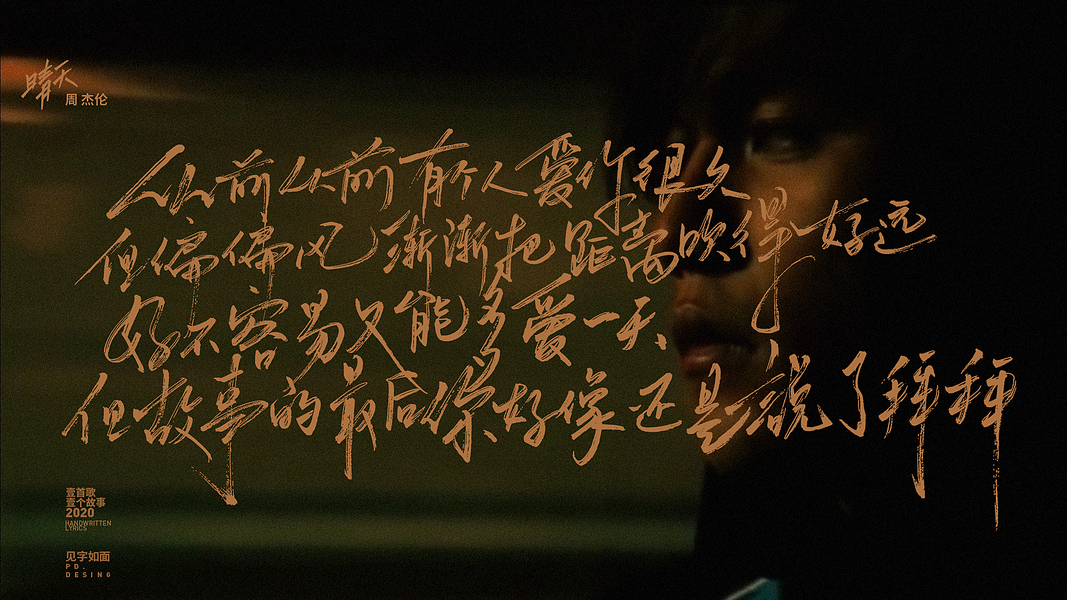 晴天
周杰伦
从从前从前有个人爱你很久
但偏偏风渐渐把距离吹得好远
好不容易又能多爱一天
但故事的最后你好像还是说了拜拜
壹首歌
壹个故事
2020
HANDWRITTEN
LYRICS
见字如面
PD.
DESING